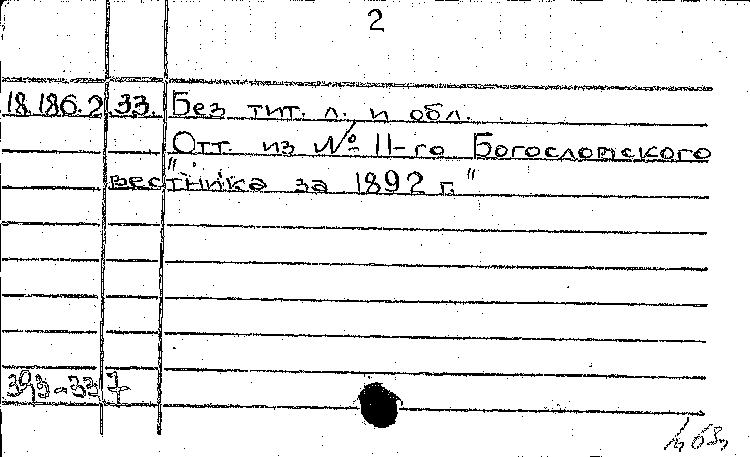 2
18.186.2 33. Без тит. л. и обл.
Отт. из № 11-го Богословского
"вестника за 1892 г."
393-337